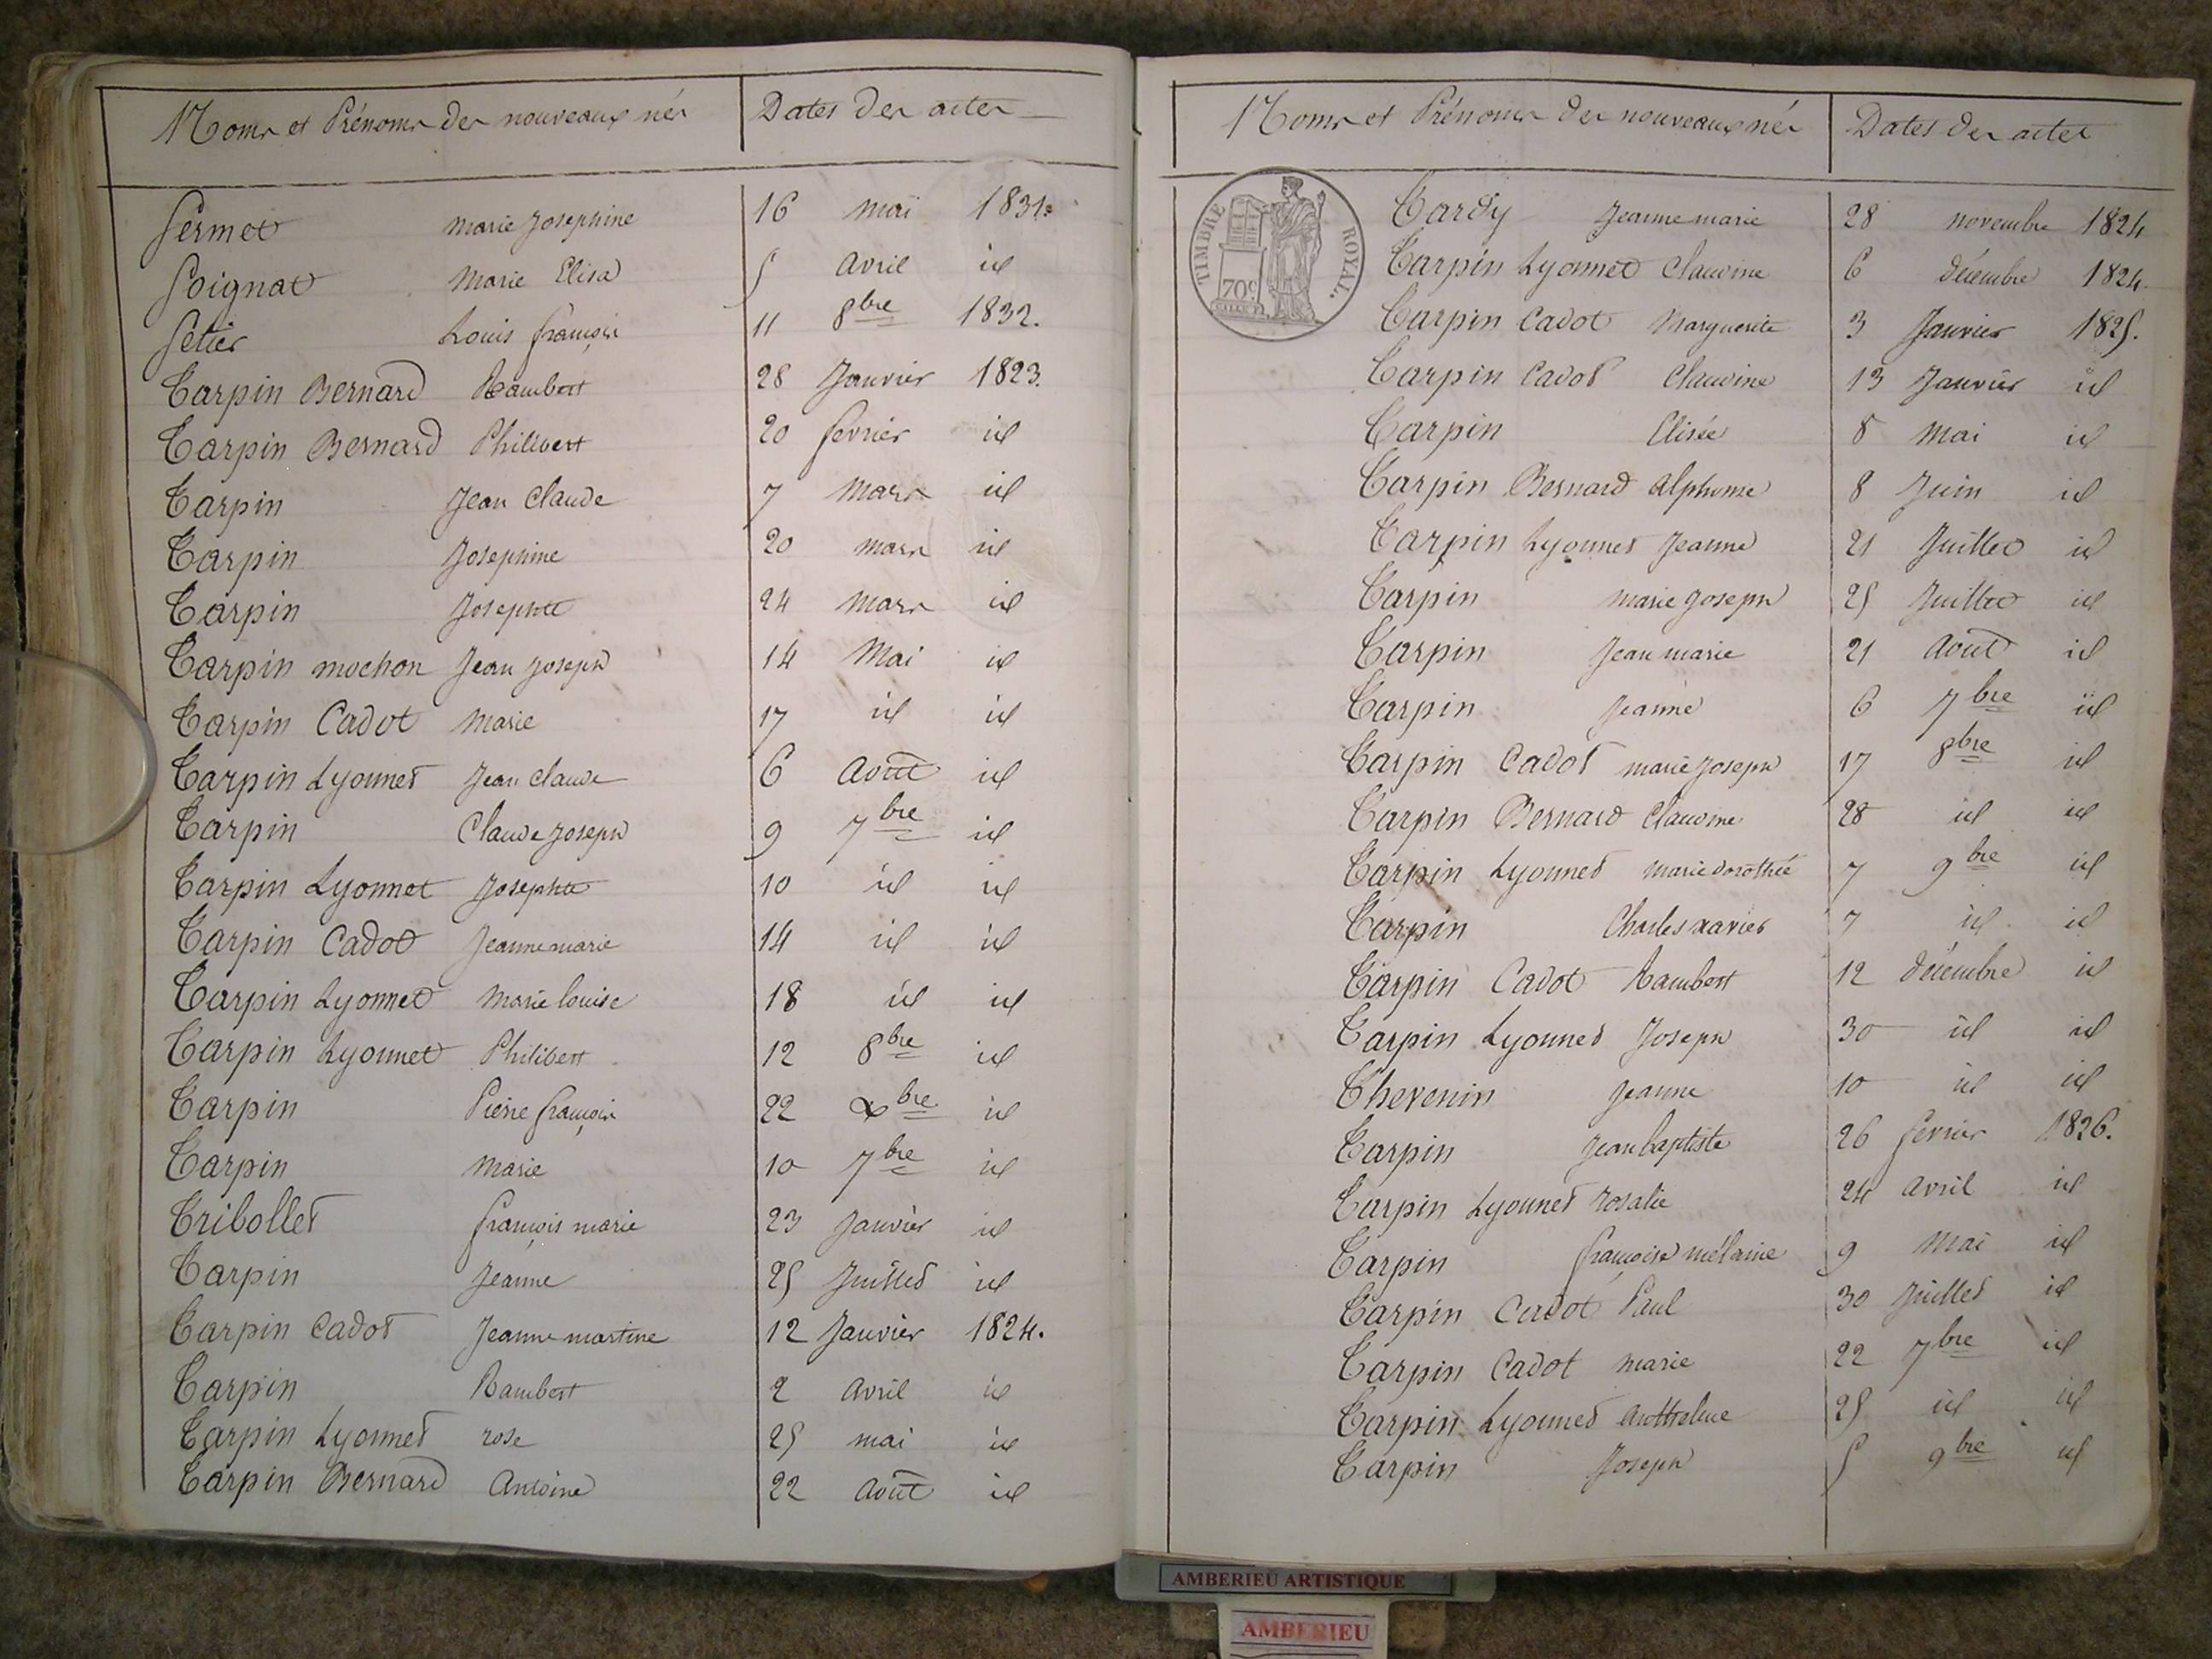 Noms et Prénoms des nouveaux nés Dates des actes
Sermet Marie Josephine 16 mai 1831.
Soignat Marie Elisa 5 Avril id
Setier Louis françois 11 8bre 1832.
Tarpin Bernard Rambert 28 Janvier 1823.
Tarpin Bernard Philibert 20 fevrier id
Tarpin Jean Claude 7 Mars id
Tarpin Josephine 20 mars id
Tarpin Josephte 24 mars id
Tarpin mochon Jean Joseph 14 Mai id
Tarpin Cadot Marie 17 id id
Tarpin Lyonnet Jean Claude 6 Août id
Tarpin Claude Joseph 9 7bre id
Tarpin Lyonnet Josephte 10 id id
Tarpin Cadot Jeanne marie 14 id id
Tarpin Lyonnet Marie louise 18 id id
Tarpin Lyonnet Philibert 12 8bre id
Tarpin Pierre françois 22 Xbre id
Tarpin Marie 10 7bre id
Tribollet françois marie 23 Janvier id
Tarpin Jeanne 25 Juillet id
Tarpin Cadot Jeanne martine 12 Janvier 1824.
Tarpin Rambert 2 Avril id
Tarpin Lyonnet rose 25 mai id
Tarpin Bernard Antoine 22 Août id
Noms et Prénoms des nouveaux nés Dates des actes
TIMBRE ROYAL.
70c
Tardy Jeanne marie 28 novembre 1824
Tarpin Lyonnet Claudine 6 décembre 1824.
Tarpin Cadot Marguerite 3 Janvier 1825.
Tarpin Cadot Claudine 13 Janvier id
Tarpin Elisée 8 Mai id
Tarpin Bernard Alphonse 8 Juin id
Tarpin Lyonnet Jeanne 21 Juillet id
Tarpin marie Joseph 25 Juillet id
Tarpin Jean marie 21 Août id
Tarpin Jeanne 6 7bre id
Tarpin Cadot marie Joseph 17 8bre id
Tarpin Bernard Claudine 28 id id
Tarpin Lyonnet Marie dorothée 7 9bre id
Tarpin Charles xavier 7 id id
Tarpin Cadot Rambert 12 décembre id
Tarpin Lyonnet Joseph 30 id id
Thevenin Jeanne 10 id id
Tarpin Jean baptiste 26 fevrier 1826.
Tarpin Lyonnet rosalie 24 Avril id
Tarpin françoise mélanie 9 Mai id
Tarpin Cadot Paul 30 Juillet id
Tarpin Cadot marie 22 7bre id
Tarpin Lyonnet Anthelme 25 id id
Tarpin Joseph 5 9bre id
AMBERIEU ARTISTIQUE
AMBERIEU